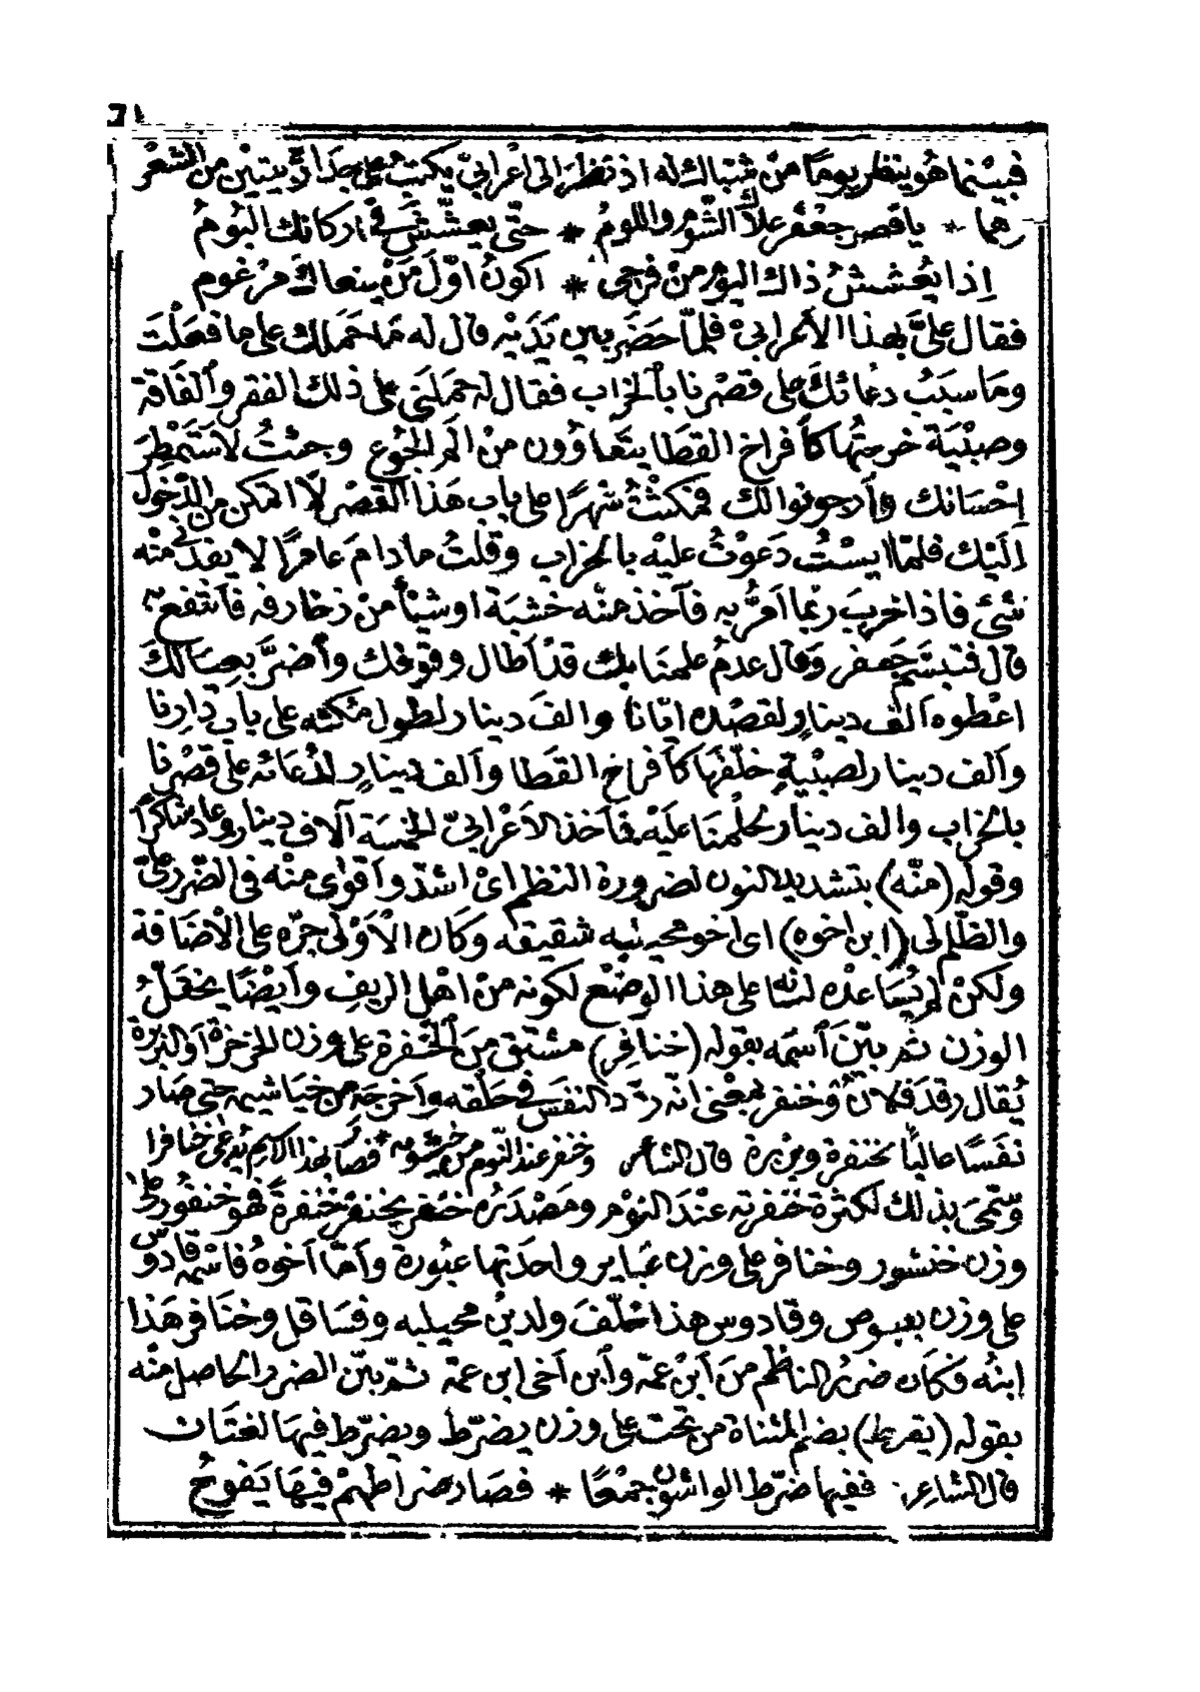 ٦١
فبينما هو ينظر يومًا من شباك له اذ نظر الى اعرابيّ يكتب على جدار بيتين من الشعر
وهما * يا قصر جعفر علاك الشوم واللومُ * حتى يعشّش في اركانك البُومُ
اِذا يعُشش ذاك اليوم من فرحى * اكونُ اوّلَ مَنْ ينعاك مرغوم
فقال علىَّ بهذا الأعرابىْ فلمّا حَضَر بين يَدَيْه قال له مَا حَمَلك على ما فعلت
وما سبَبُ دعائك على قصْرنا بالخراب فقال له حمَلَنى على ذلك الفقر والفاقة
وصبْيَة خرجتُها كأفراخ القطَا يتعاوون منْ الم الجُوع وجئتُ لأستمْطِرَ
اِحْسَانك وأرجو نوالك فمكثتُ شهرًا على باب هَذا القصْر لا اتمكن من الدّخول
اليْك فلمّا ايسْتُ دَعوْتُ عليْه بالخراب وقلتُ ما دامَ عامرًا لا يفدْنى منْه
شئ فاذا خرِبَ ربما امرُّ به فآخذ منْه خشبَة او شيئًا منْ زخارفه فانتفع به
قال فتبسّم جَعفر وَقال عدمُ علمنَا بك قدْ أطال وقوفك وأضرَّ بعيالكَ
اعْطوه ألف دينارٍ لقصْده ايّانا والفَ دينار لطول مكثه على باب دارنا
وألف دينار لصبْيةٍ خلّفهَا كأفراخ القطا وألف دينارٍ لدُعَائه على قصْرنا
بالخراب والف دينار لحلْمنَا عليْه فأخذ الأعْرابىّ الخمسَة آلاف دينار وعاد شاكرًا
وقوله (منّه) بتشديد النون لضرورة النظم اىْ اشدّ وأقوٰى منْه فى الضّرر علىّ
والظّلم لى (ابن اخوه) اى اخو محيلبه شقيقه وكان الأوْلى جرّه على الاضافة
ولكنْ لم يُسَاعدْه لسَانه على هذا الوضْع لكونه منْ اهْل الريفِ وأيضًا يختلّ
الوزن ثم بيّنَ اسمَه بقوله (خنافِر) مشتق منَ الخنْفرة على وزن الخرخرة او البربرة
يُقال رقدَ فلانٌ وَخنفر بمعْنى انّه ردّد النفَس فى حَلْقه وأخرجَه من خيَاشيمه حتى صَار
نَفَسًا عاليًا بخنفرة وبربرة قال الشاعر وخنفر عند النّوم من خيشومه * فصَار بهذا الاسم يُدعٰى خنافرا
وسمّىَ بذلك لكثرة خنفرته عنْدَ النوْم ومَصْدَرُه خنْفر يخنفرُ خنْفرةً فهو خنفُور على
وزن خنشور وخنافر على وزن عبَاير واحدَتها عبُورة وأمّا اخوهُ فاسْمه قادوس
على وزن بعبوص وقادوس هذا خلّفَ ولدينْ محيلبه وفسَاقل وخنَافر هَذا
ابنُه فكان ضررُ الناظم منَ ابْن عمّه وابن اخى ابن عمّه ثم بيّن الضرر الحاصل منْه
بقوله (يقرط) بضم المثناة من تحت على وزن يضرّط ويضرّط فيهَا لغتَان
قال الشاعر ففيها ضرّط الواشونَ جمْعًا * فصَار ضراطهمْ فيهَا يَفوحُ